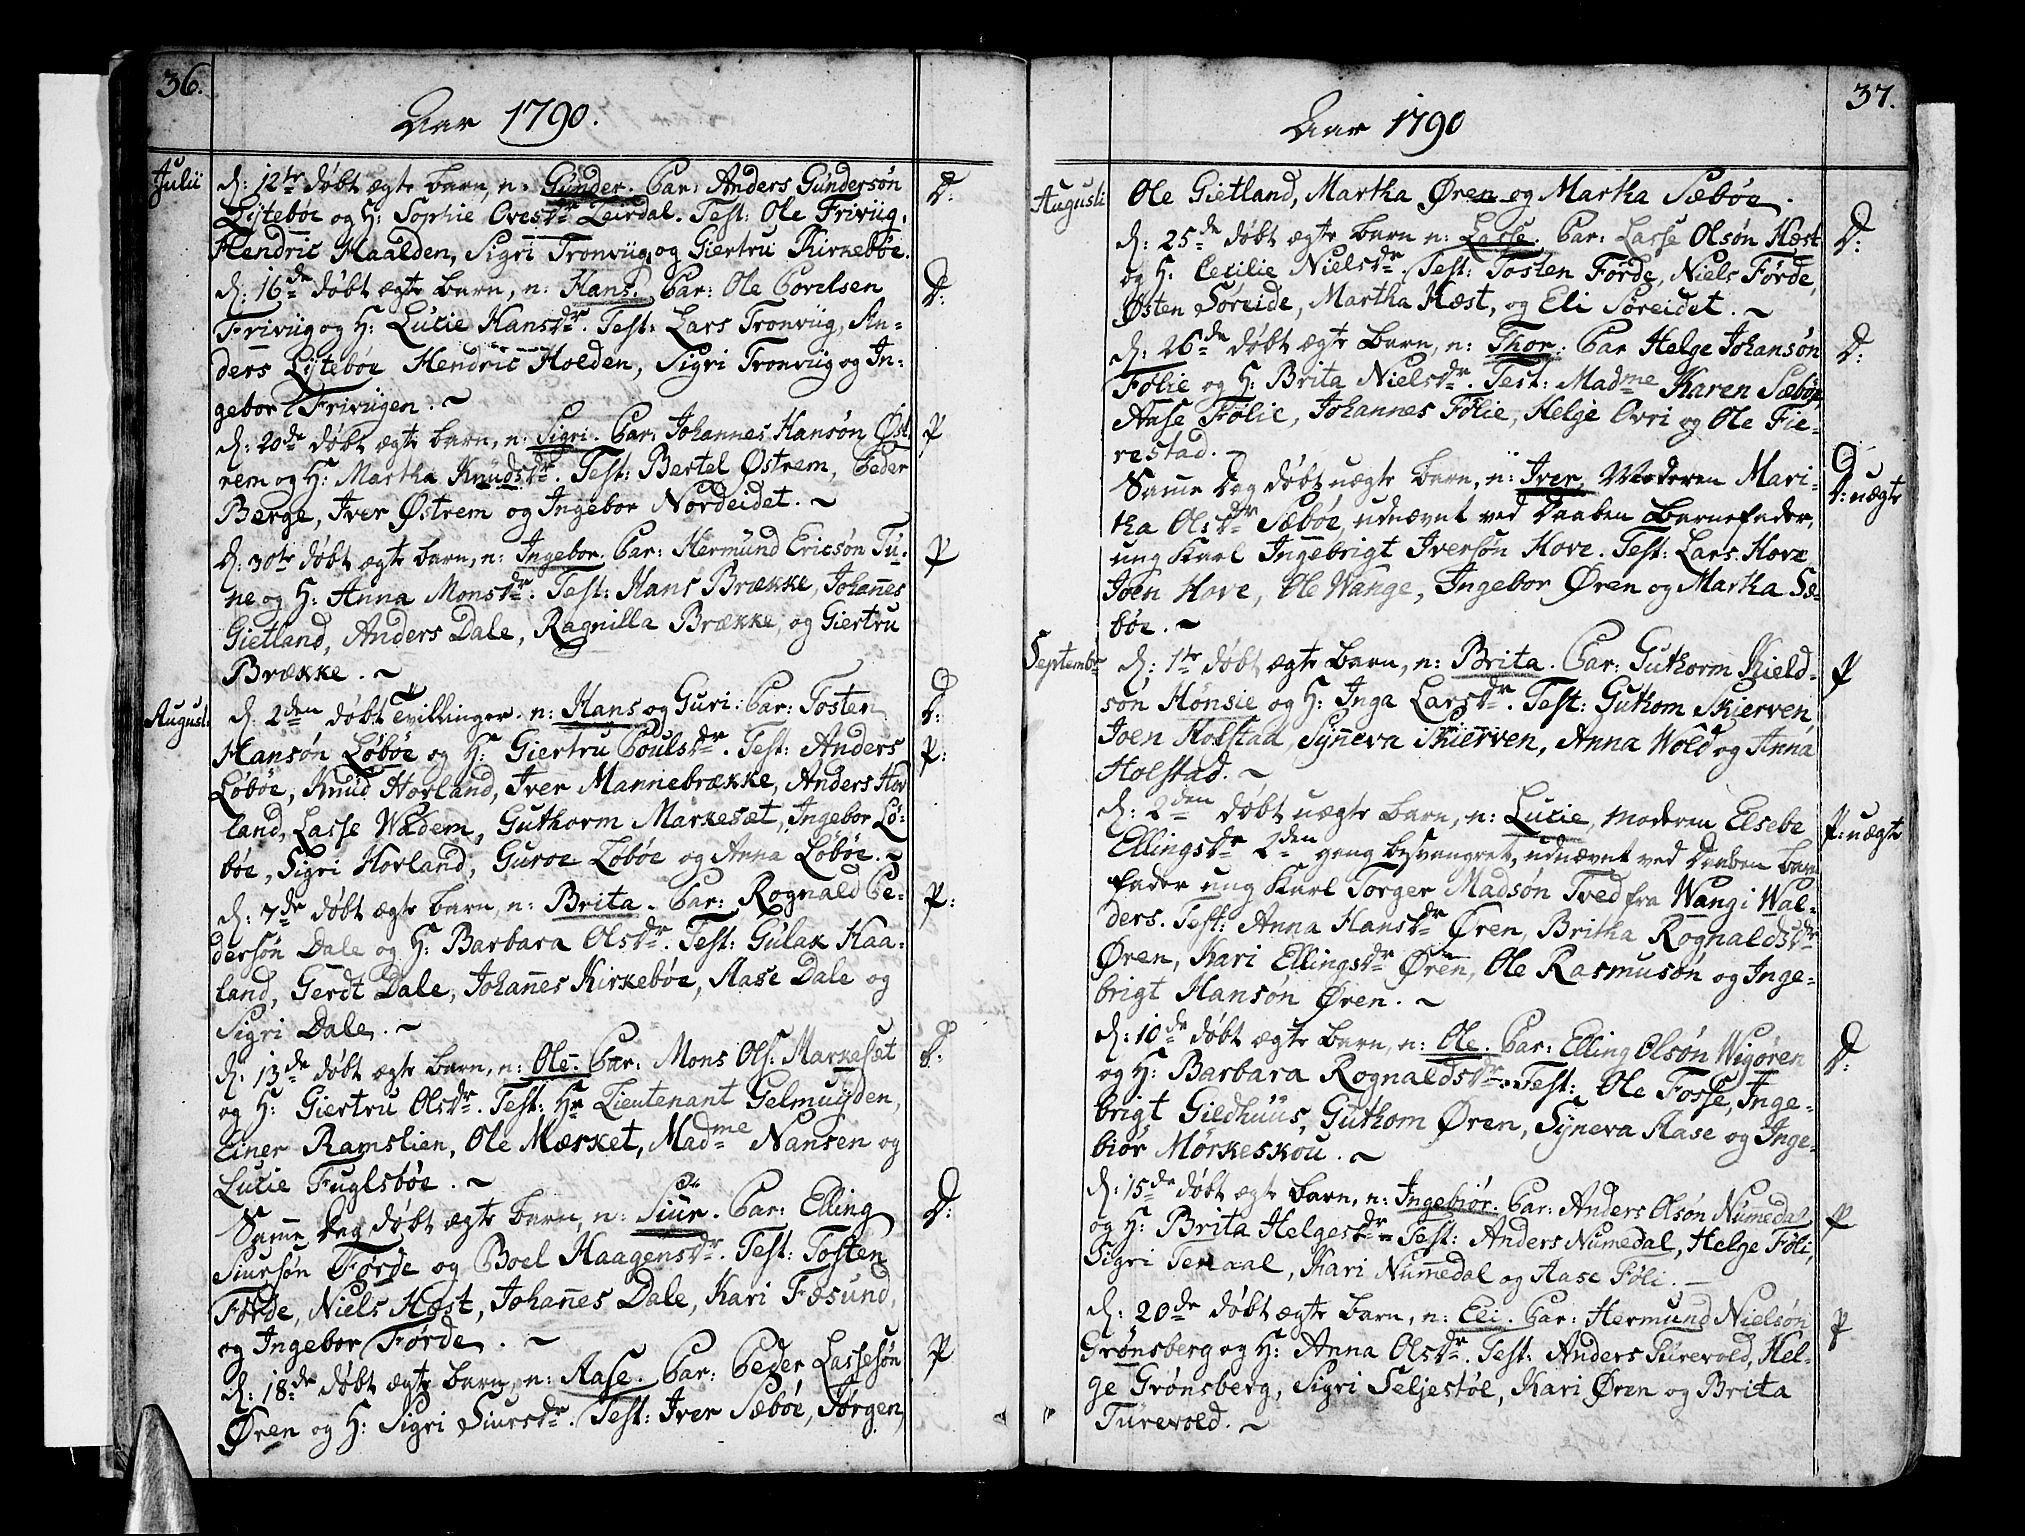 36.
Aar 1790.
Julii
d: 12te døbt ægte barn, n: Gunder. Par: Anders Gundersøn D:
Lytebøe og H: Sophie Ovesdr Leirdal. Test: Ole Friviig,
Hendric Haalden, Sigri Tronviig, og Giertru Kirkebøe.
d: 16de døbt ægte barn, n: Hans. Par: Ole Povelsen D:
Friviig og H: Lucie Hansdr. Test: Lars Tronviig, An-
ders Lytebøe Hendric Holden, Sigri Tronviig og In-
gebor Friviigen.
d: 20de døbt ægte barn, n: Sigri. Par: Johannes Hansøn Øst P
rem og H: Martha Knudsdr. Test: Bertel Østrem, Peder
Berge, Iver Østrem og Ingebor Nordeidet.
d: 30te døbt ægte barn, n: Ingebor. Par: Hermund Ericsøn Tu- P
ne og H: Anna Monsdr. Test: Hans Brække, Johannes
Gietland, Anders Dale, Ragnilla Brække, og Giertru
Brække.
August:
d: 2den døbt Tvillinger n: Hans og Guri. Par: Tosten D:
Hansøn Løbøe og H: Giertru Poulsdr. Test: Anders P:
Løbøe, Knud Hovland, Iver Mannebrække, Anders Hov
land, Lasse Wadem, Guthorm Markesæt, Ingebor Lø-
bøe, Sigri Hovland, Guroe Løbøe og Anna Løbøe.
d: 7de døbt ægte barn, n: Brita. Par: Rognald Pe- P:
dersøn Dale og H: Barbara Olsdr. Test: Gulak Haa-
land, Gerdt Dale, Johannes Kirkebøe, Aase Dale og
Sigri Dale.
d: 13de døbt ægte barn, n: Ole. Par: Mons Ols: Markesæt D:
og H: Giertru Olsdr. Test: Hr Lieutenant Gelmuyden,
Einer Ramslien, Ole Mærket, Madme Nansen og
Lucie Fuglsbøe.
Samme Dag døbt ægte barn, n: Siur. Par: Elling D:
Siursøn Førde og Boel Haagensdr. Test: Tosten
Førde, Niels Hæst, Johannes Dale, Kari Fæsund,
og Ingebor Førde.
d: 18de døbt ægte barn, n: Aase. Par: Peder Lassesøn P
Øren og H: Sigri Siursdr. Test: Iver Sæbøe, Jørgen,
37.
Aar 1790
Augusti
Ole Gietland, Martha Øren og Martha Sæbøe.
d: 25de døbt ægte barn n: Lasse. Par: Lasse Olsøn Hæst D:
og H: Cecilie Nielsdr. Test: Tosten Førde, Niels Førde,
Østen Søreide, Martha Hæst, og Eli Søreidet.
d: 26de døbt ægte barn, n: Thor. Par Helge Johansøn D:
Følie og H: Brita Nielsdr. Test: Madme Karen Sæbøe,
Aase Følie, Johannes Følie, Helje Ovri og Ole Fie-
restad.
Samme Dag døbt uægte barn, n: Iver, Moderen Mari- D: uægte
tha Olsdr Sæbøe, udnævnt ved Daaben Barnefader,
ung Karl Ingebrigt Iversøn Hove. Test: Lars Hove
Joen Hove, Ole Wange, Ingebor Øren og Martha Sæ-
bøe.
Septembr
d: 1te døbt ægte barn, n: Brita. Par: Guthorm Kield- P
søn Hønsie og H: Inga Larsdr. Test: Guthom Skierven,
Joen Holstad, Syneva Skierven, Anna Wold og Anna
Holstad.
d: 2den døbt uægte barn, n: Lucie, moderen Elsebe P: uægte
Ellingsdr 2den gang besvangret, udnævnt ved Daaben barn
fader ung Karl Torger Madsøn Tved fra Wang i Wal-
ders. Test: Anna Hansdr Øren, Britha Rognaldsdr
Øren, Kari Ellingsdr Øren, Ole Rasmusøn og Inge-
brigt Hansøn Øren.
d: 10de døbt ægte barn, n: Ole. Par: Elling Olsøn Wigøren D:
og H: Barbara Rognaldsdr. Test: Ole Fosse, Inge-
brigt Gildhuus, Guthom Øren, Syneva Aase og Inge-
biør Mørkeskou.
d: 15de døbt ægte barn, n: Ingebiør. Par: Anders Olsøn Nummedal P
og H: Brita Helgesdr. Test: Anders Numedal, Helge Føli,
Sigri Tenaal, Kari Nummedal og Aase Føli.
d: 20de døbt ægte barn, n: Eli. Par: Hermund Nielsøn P
Grønsberg og H: Anna Olsdr. Test: Anders Turevold, Hel-
ge Grønsberg, Sigri Seljestøl, Kari Øren og Brita
Turevold.